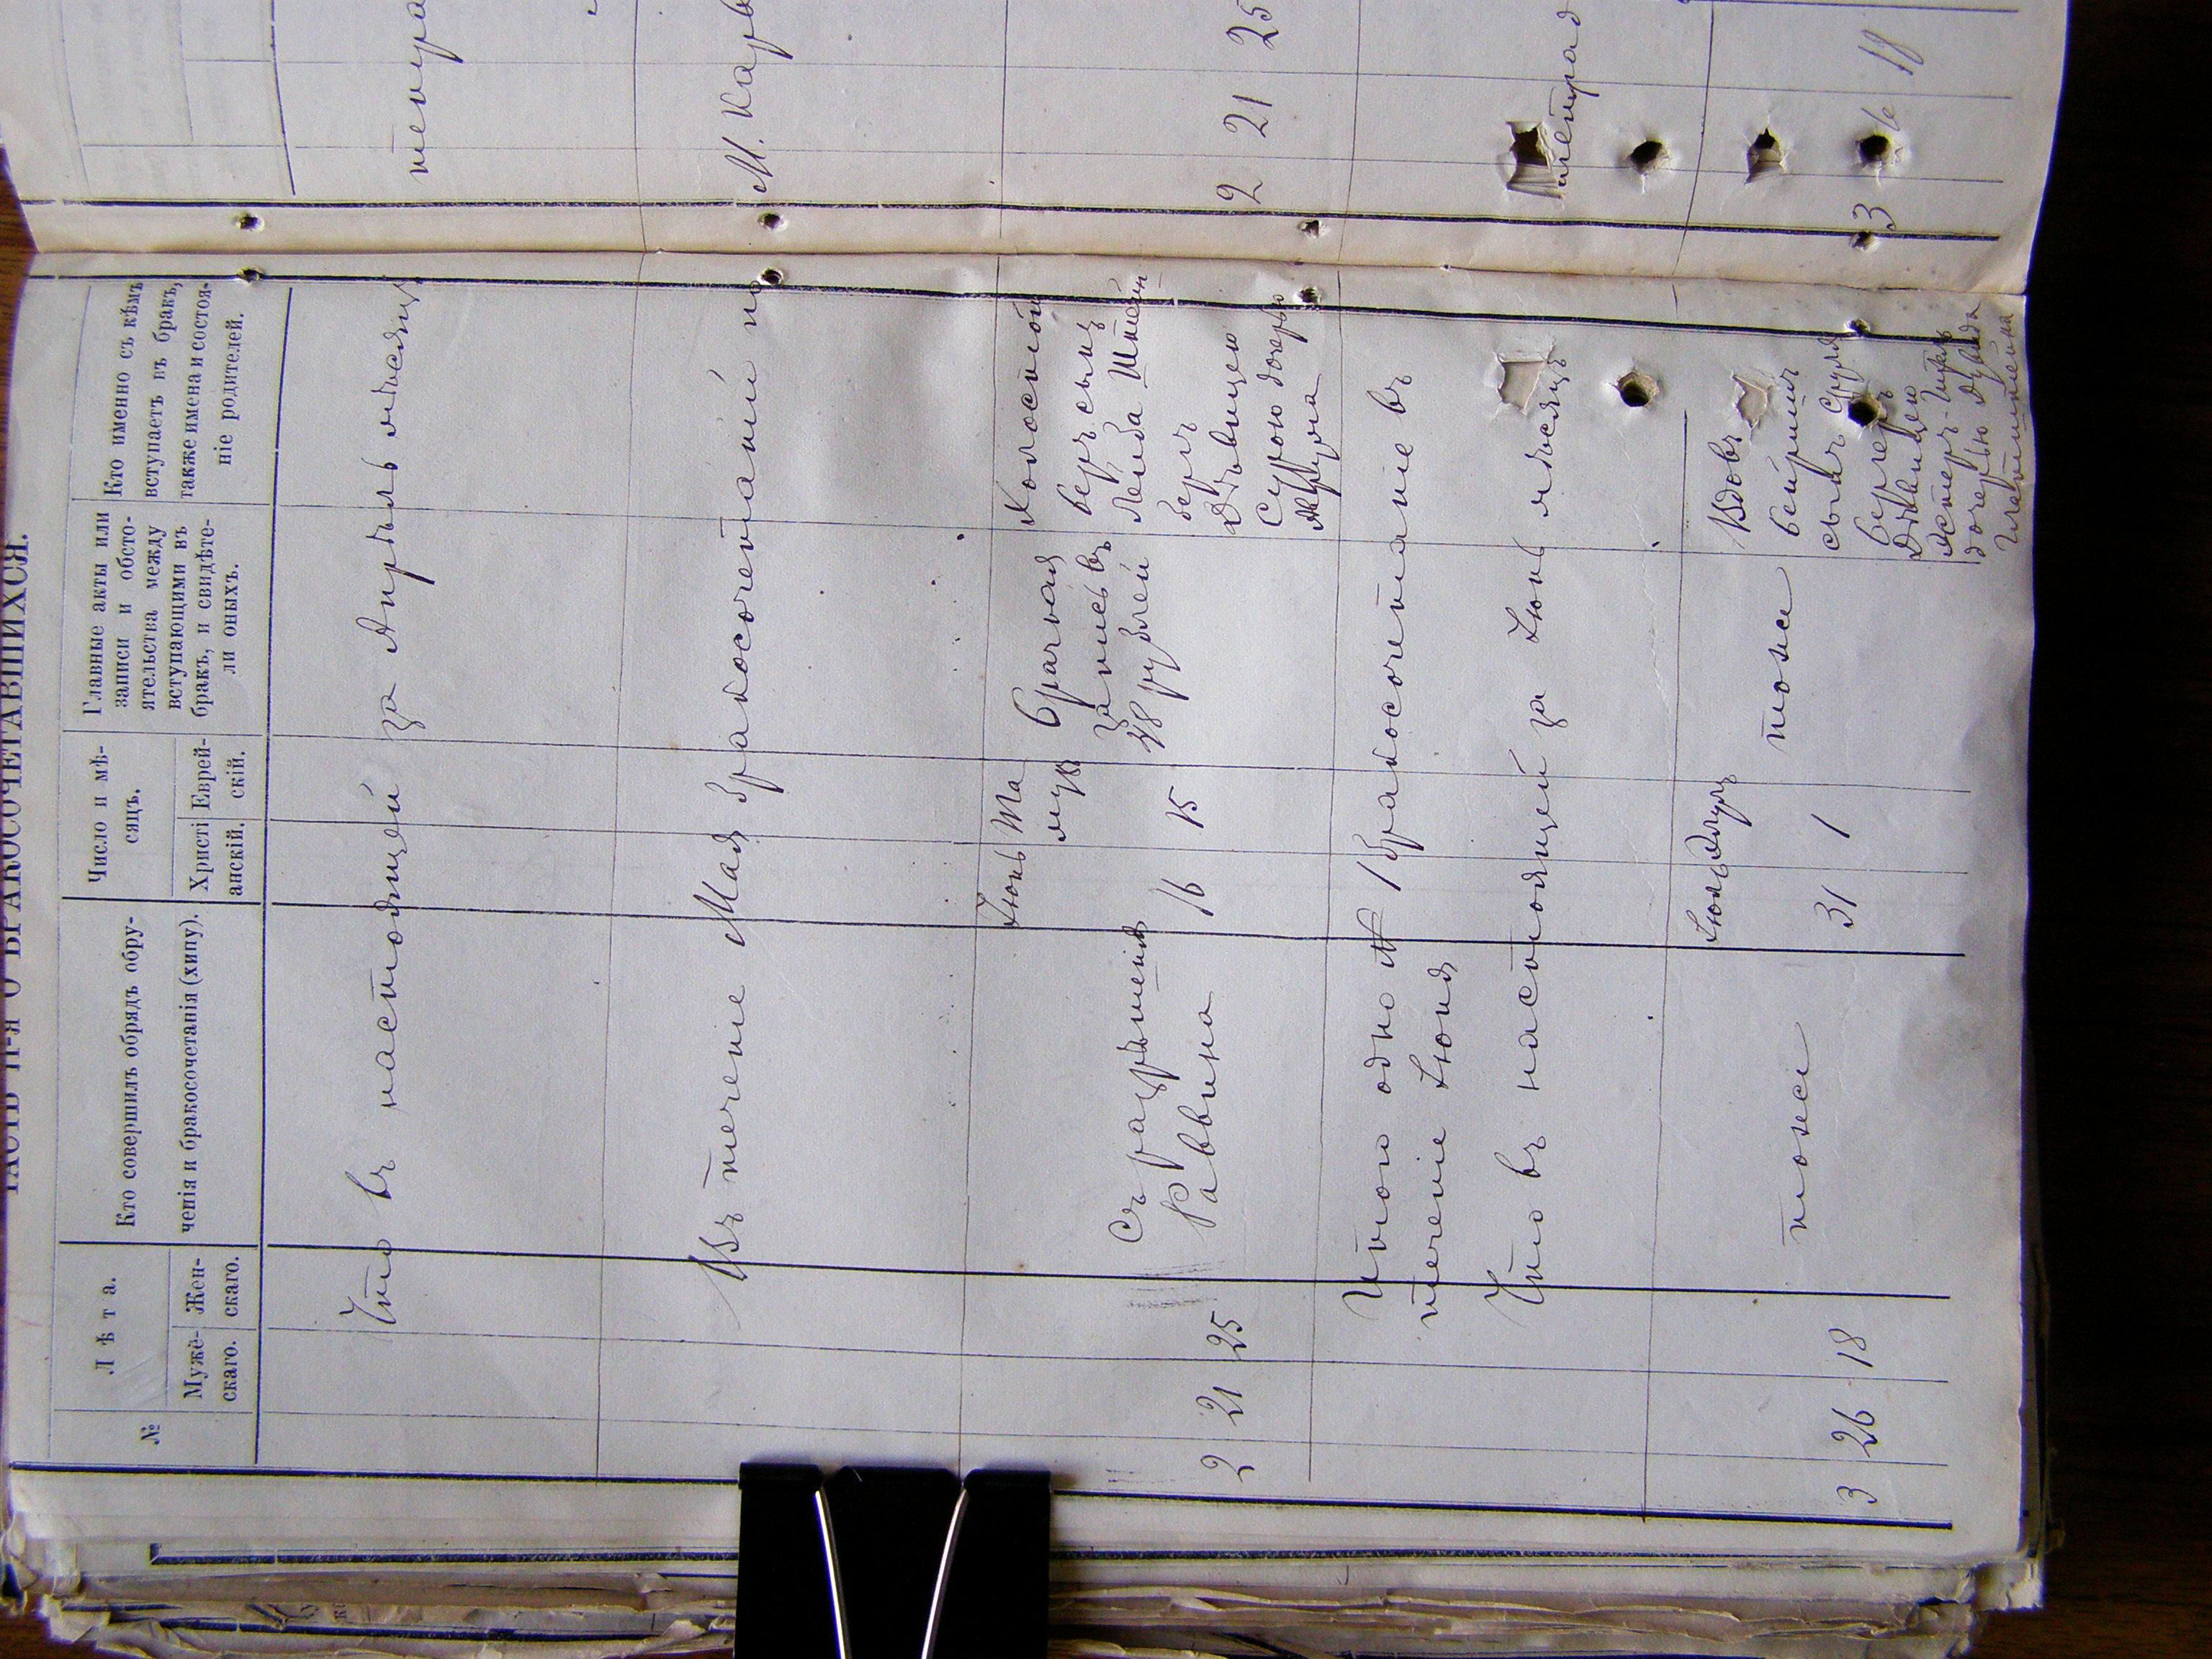 ЧАСТЬ II-я О БРАКОСОЧЕТАВШИХСЯ.
№
Лѣта.
Муже-
скаго.
Жен-
скаго.
Кто совершилъ обрядъ обру-
ченія и бракосочетанія (хипу).
Число и мѣ-
сяцъ.
Христі
анскій.
Еврей-
скій.
Главные акты или
записи и обсто-
ятельства между
вступающими въ
бракъ, и свидѣте-
ли оныхъ.
Кто именно съ кѣмъ
вступаетъ въ бракъ,
также имена и состоя-
ніе родителей.
Что въ настоящей за Апрѣль мѣсяцъ
тетра
Въ теченіе Мая бракосочетаній не
М. Карв
2 21 25
Съ разрѣшенія
Раввина
Іюнь
16
Та
музъ
15
Брачная
запись въ
48 рублей
Холостой
Беръ сынъ
Лейба Штейн
беръ
Дѣвицею
Сурою дочерью
2 21 25
Итого одно № 1 бракосочетаніе въ
теченіе Іюня
Что въ настоящей за Іюнь мѣсяцъ
тетрад
3 26 18
тоже
Іюль
31
1
тоже
Вдовъ
сынъ Сруля
Берге
Дѣвицею
дочерью Дувида
3 6 18